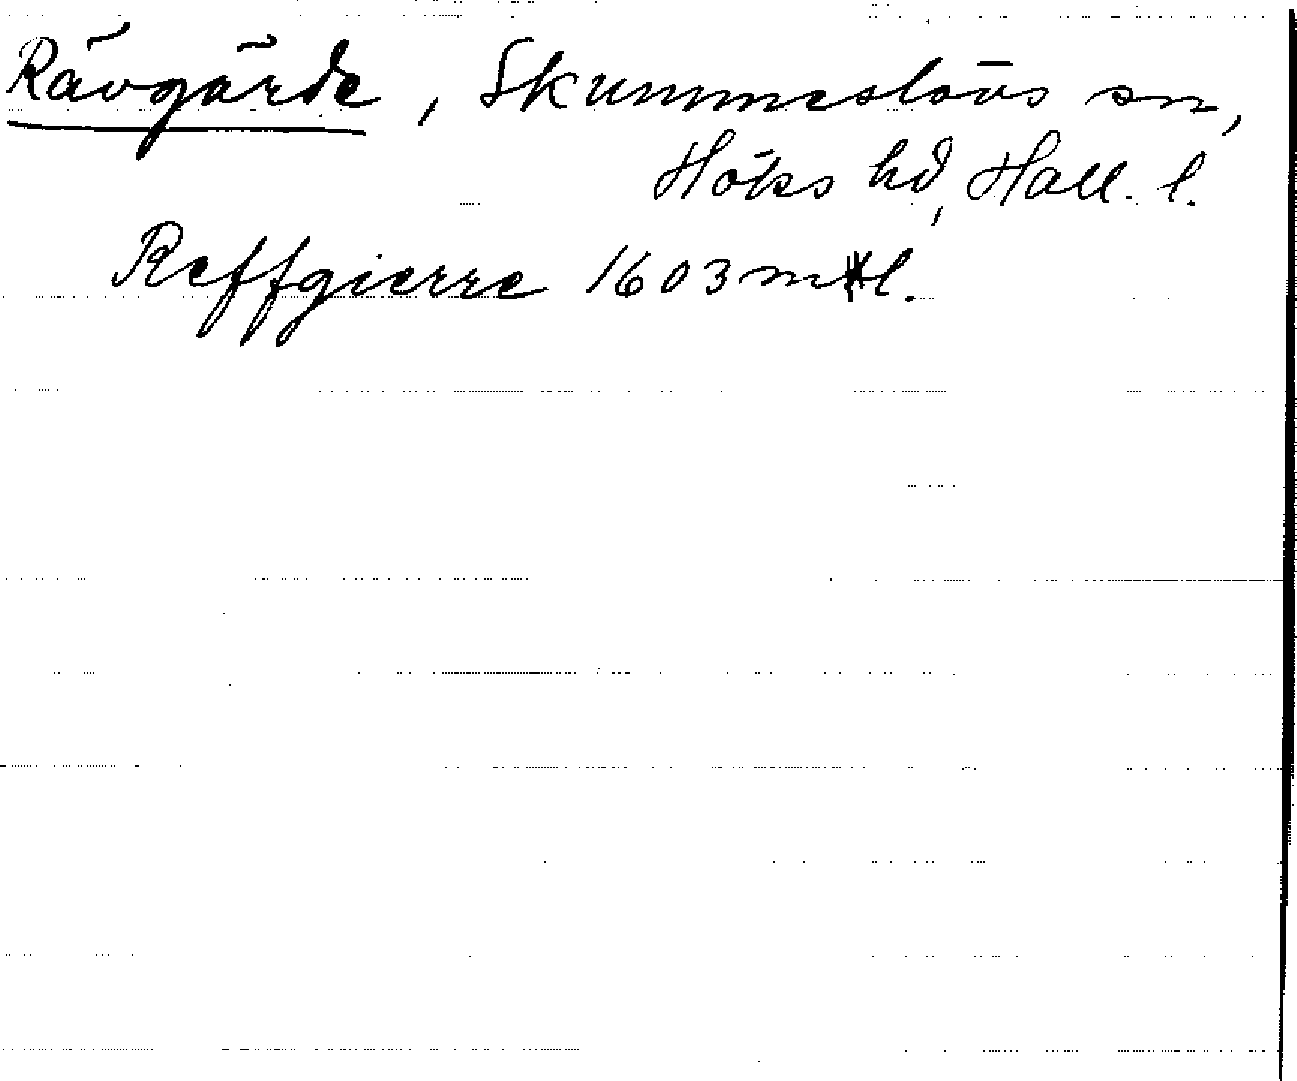 Rävgärde, Skummeslövs sn,
Höks hd, Hall. l.
Reffgierre 1603 mtl.